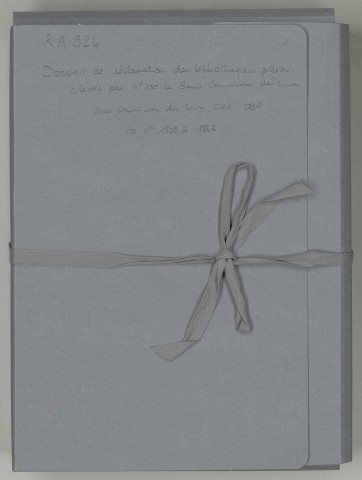 RA 326
Dossiers de réclamation des bibliothèques pillées
classés par n° de la Sous Commission des Livres
Sous Commission des Livres CRA
de n° 1809 à 1963